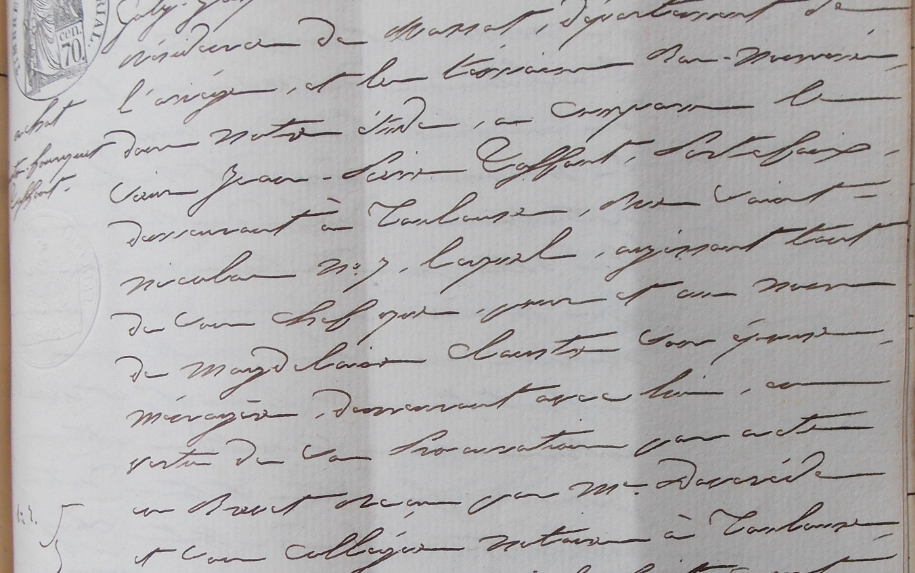 TIMBRE
cen. 70
résidence de Massat, département de
l'ariége, et les témoins bas-nommés,
dans notre étude, a comparu le
sieur Jean-Pierre Toffant, Portefaix,
demeurant à Toulouse, Rue Saint
nicolas n.o 7, lequel, agissant tant
de son chef que, pour et au nom
de Magdelaine Claustre son épouse
ménagère, demeurant avec lui, en
vertu de sa Procuration par acte
en Brevet Reçu par Me.
et son collégue notaires à Toulouse
achat